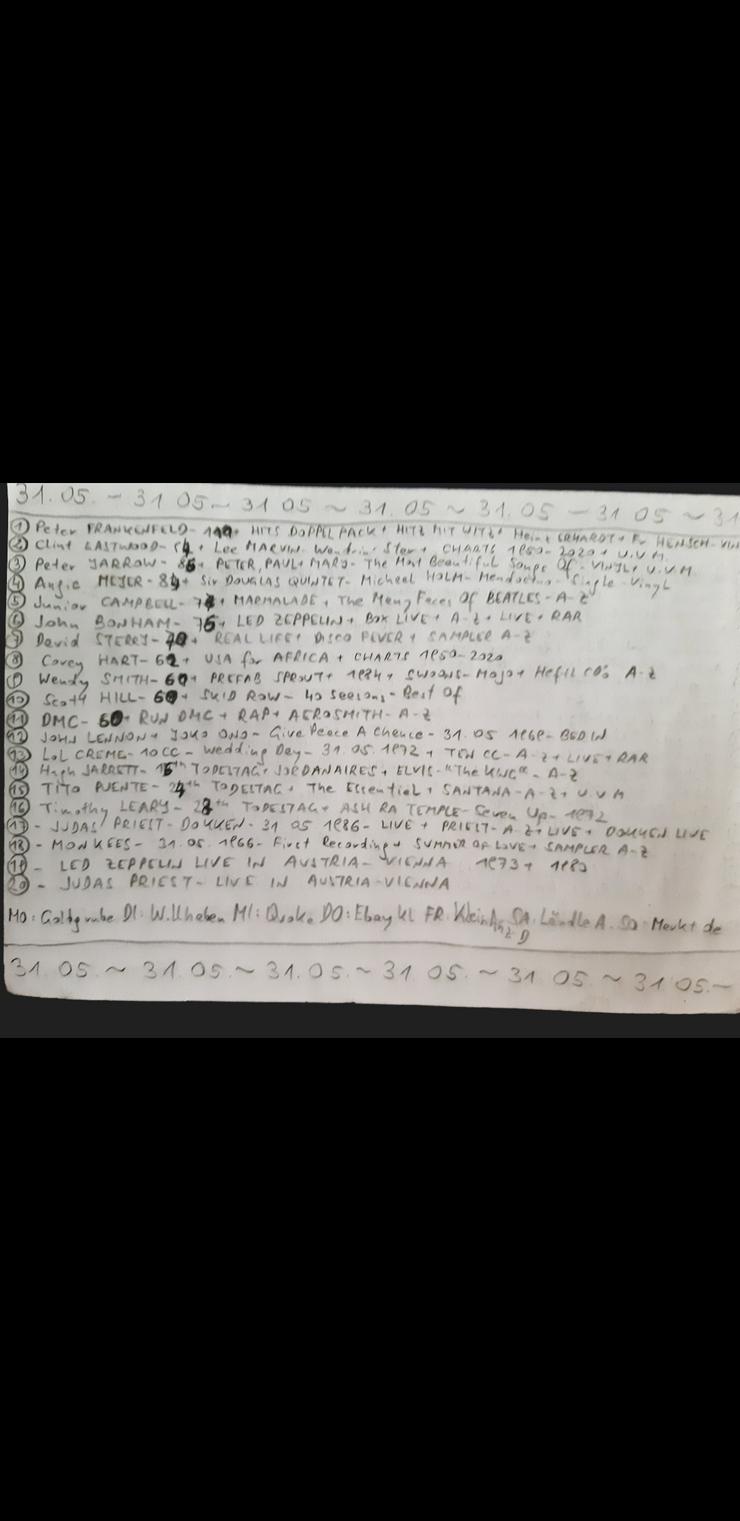 31.05. ~ 31 05 ~ 31 05 ~ 31.05 ~ 31.05 ~ 31 05 ~ 31
① Peter FRANKENFELD - + HITS DOPPELPACK + HITZ MIT WITZ + Heinz ERHARDT + Fr HENSCH - VIN
② Clint EASTWOOD - + Lee MARVIN - Wandrin' Star + CHARTS 1950-2020 + U.V.M.
③ Peter YARROW - 86 + PETER, PAUL + MARY - The Most Beautiful Songs Of - VINYL + U.V.M
④ Angie MEJER - + Sir DOUGLAS QUINTET - Michael HOLM - Mendocino - Single - Vinyl
⑤ Junior CAMPBELL - + MARMALADE + The Many Faces Of BEATLES - A-Z
⑥ John BONHAM - 76 + LED ZEPPELIN + BOX LIVE + A-Z + LIVE + RAR
⑦ David STERRY - + REAL LIFE + DISCO FEVER + SAMPLER A-Z
⑧ Corey HART - 62 + USA for AFRICA + CHARTS 1950-2020
⑨ Wendy SMITH - + PREFAB SPROUT + 1984 + SWOONS - Mojo + Heftl CDs A-Z
⑩ Scott HILL - 60 + SKID ROW - 40 Seasons - Best Of
⑪ DMC - 60 + RUN DMC + RAP + AEROSMITH - A-Z
⑫ JOHN LENNON + YOKO ONO - Give Peace A Chance - 31.05 1969 - BED IN
⑬ LOL CREME - 10CC - Wedding Day - 31.05.1972 + TEN CC - A-Z + LIVE + RAR
⑭ Hugh JARRETT - 16th TODESTAG + JORDANAIRES + ELVIS - "The KING" - A-Z
⑮ TITO PUENTE - 24th TODESTAG + The Essential + SANTANA - A-Z + U.V.M
⑯ Timothy LEARY - 28th TODESTAG + ASH RA TEMPLE - Seven Up - 1972
⑰ - JUDAS PRIEST - DOKKEN - 31 05 1986 - LIVE + PRIEST - A-Z + LIVE + DOKKEN LIVE
⑱ - MONKEES - 31.05.1966 - First Recording + SUMMER OF LOVE + SAMPLER A-Z
⑲ - LED ZEPPELIN LIVE IN AUSTRIA - VIENNA 1973 + 1980
⑳ - JUDAS PRIEST - LIVE IN AUSTRIA - VIENNA
MO: Goldgrube DI: W.llhaben MI: Quoka DO: Ebay kl FR: KleinAnz D SA: Ländle A. SO: Markt de
31.05. ~ 31.05. ~ 31.05. ~ 31.05. ~ 31.05 ~ 31 05. ~